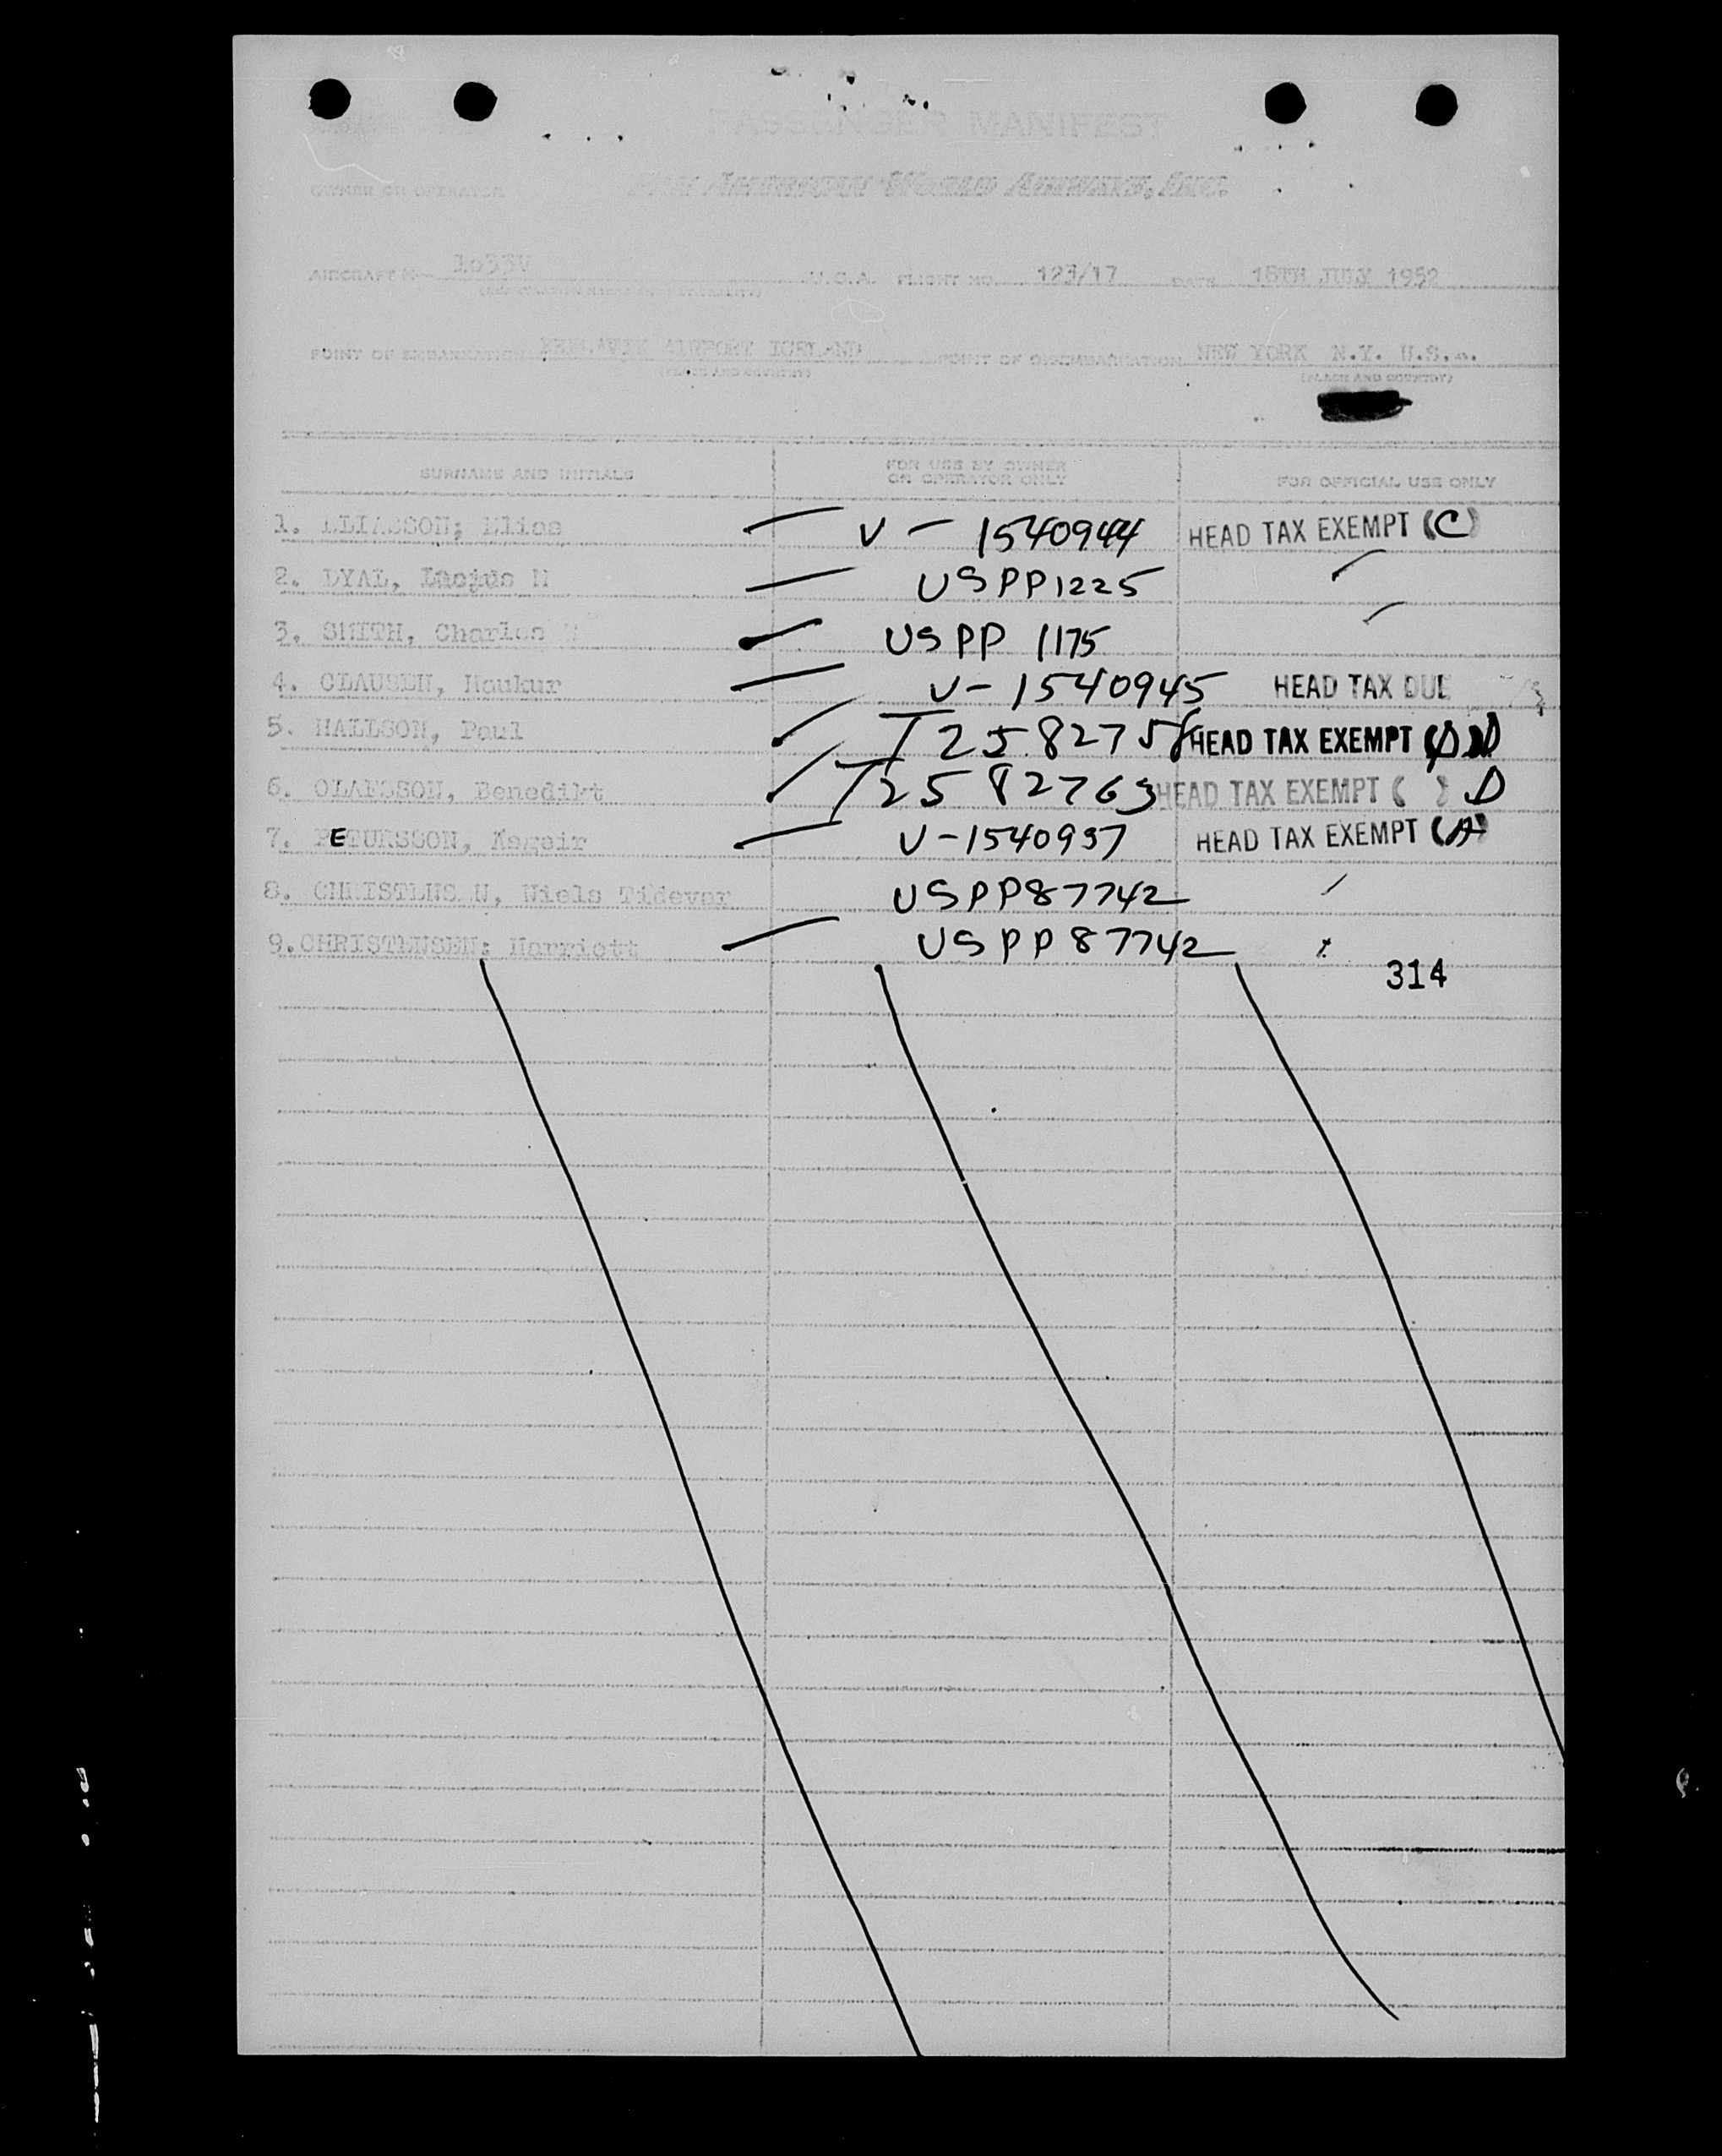 PASSENGER MANIFEST
OWNER OR OPERATOR PAN AMERICAN WORLD AIRWAYS, INC.
AIRCRAFT 1033V U.S.A. FLIGHT NO. 123/17 DATE 18TH JULY 1952
POINT OF EMBARKATION KEFLAVIK AIRPORT ICELAND POINT OF DISEMBARKATION NEW YORK N.Y. U.S.A.
(PLACE AND COUNTRY) (PLACE AND COUNTRY)
SURNAME AND INITIALS FOR USE BY OWNER OR OPERATOR ONLY FOR OFFICIAL USE ONLY
1. ELIASSON; Elias V - 1540944 HEAD TAX EXEMPT (C)
2. LYAL, M USPP1225
3. SMITH, Charles USPP 1175
4. CLAUSEN, Haukur V-1540945 HEAD TAX DUE
5. HALLSON, Paul T 2582758 HEAD TAX EXEMPT D
6. OLAFSSON, Benedikt T2582763 HEAD TAX EXEMPT ( ) D
7. PETURSSON, V-1540937 HEAD TAX EXEMPT (A)
8. CHRISTENSEN, Niels USPP87742
9. CHRISTENSEN; Harriett USPP87742
314